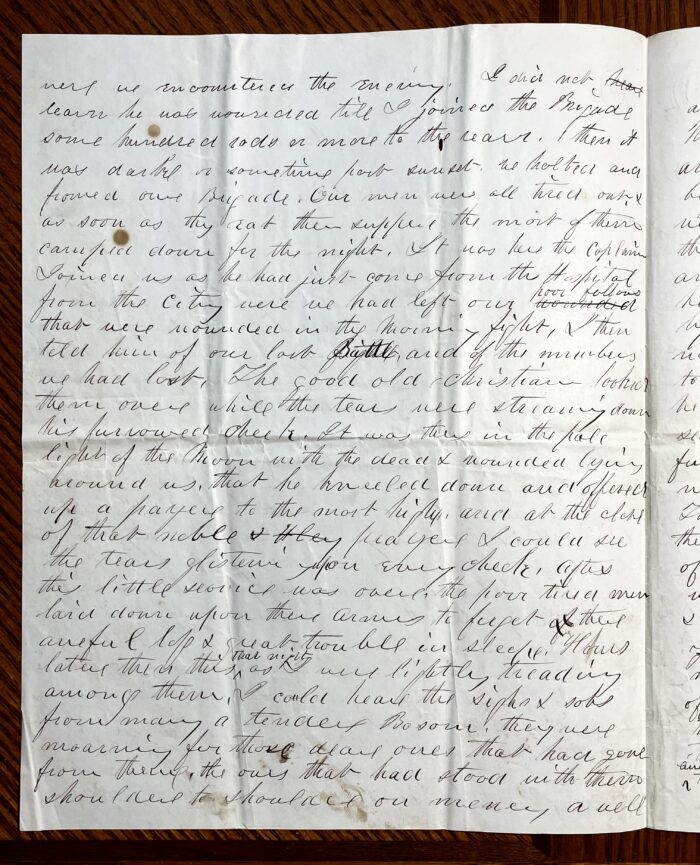 were we encountered the enemy. I did not
learn he was wounded till I joined the Brigade
some hundred rods or more to the rear. Then it
was darke or something past sunset. we holted and
fromed our Brigade. Our men were all tired out, &
as soon as they eat there supper the most of them
camped down for the night. It was here the Caplain
Joined us as he had just come from the Hospital
from the City were we had left our poor fellows wounded
that were wounded in the Morning fight, I then
told him of our lost Battle, and of the numbers
we had lost. The good old Christian looked
them over while the tears were streaming down
his furrowed cheek. It was then in the pale
light of the Moon with the dead & wounded lying
around us, that he kneeled down and offered
up a prayer to the most high, and at the close
of that noble & prayer I could see
the tears glistening upon every cheek, after
this little service was over, the poor tired men
laid down upon there arms to forget there
aweful loss & great trouble in sleepe. Hours
later then this, that night as I were lightly treading
among them, I could hear the sighs & sobs
from many a tender Bosom. they were
moarning for those deare ones that had gone
from them, the ours that had stood with them
shoulder to shoulder on meney a well